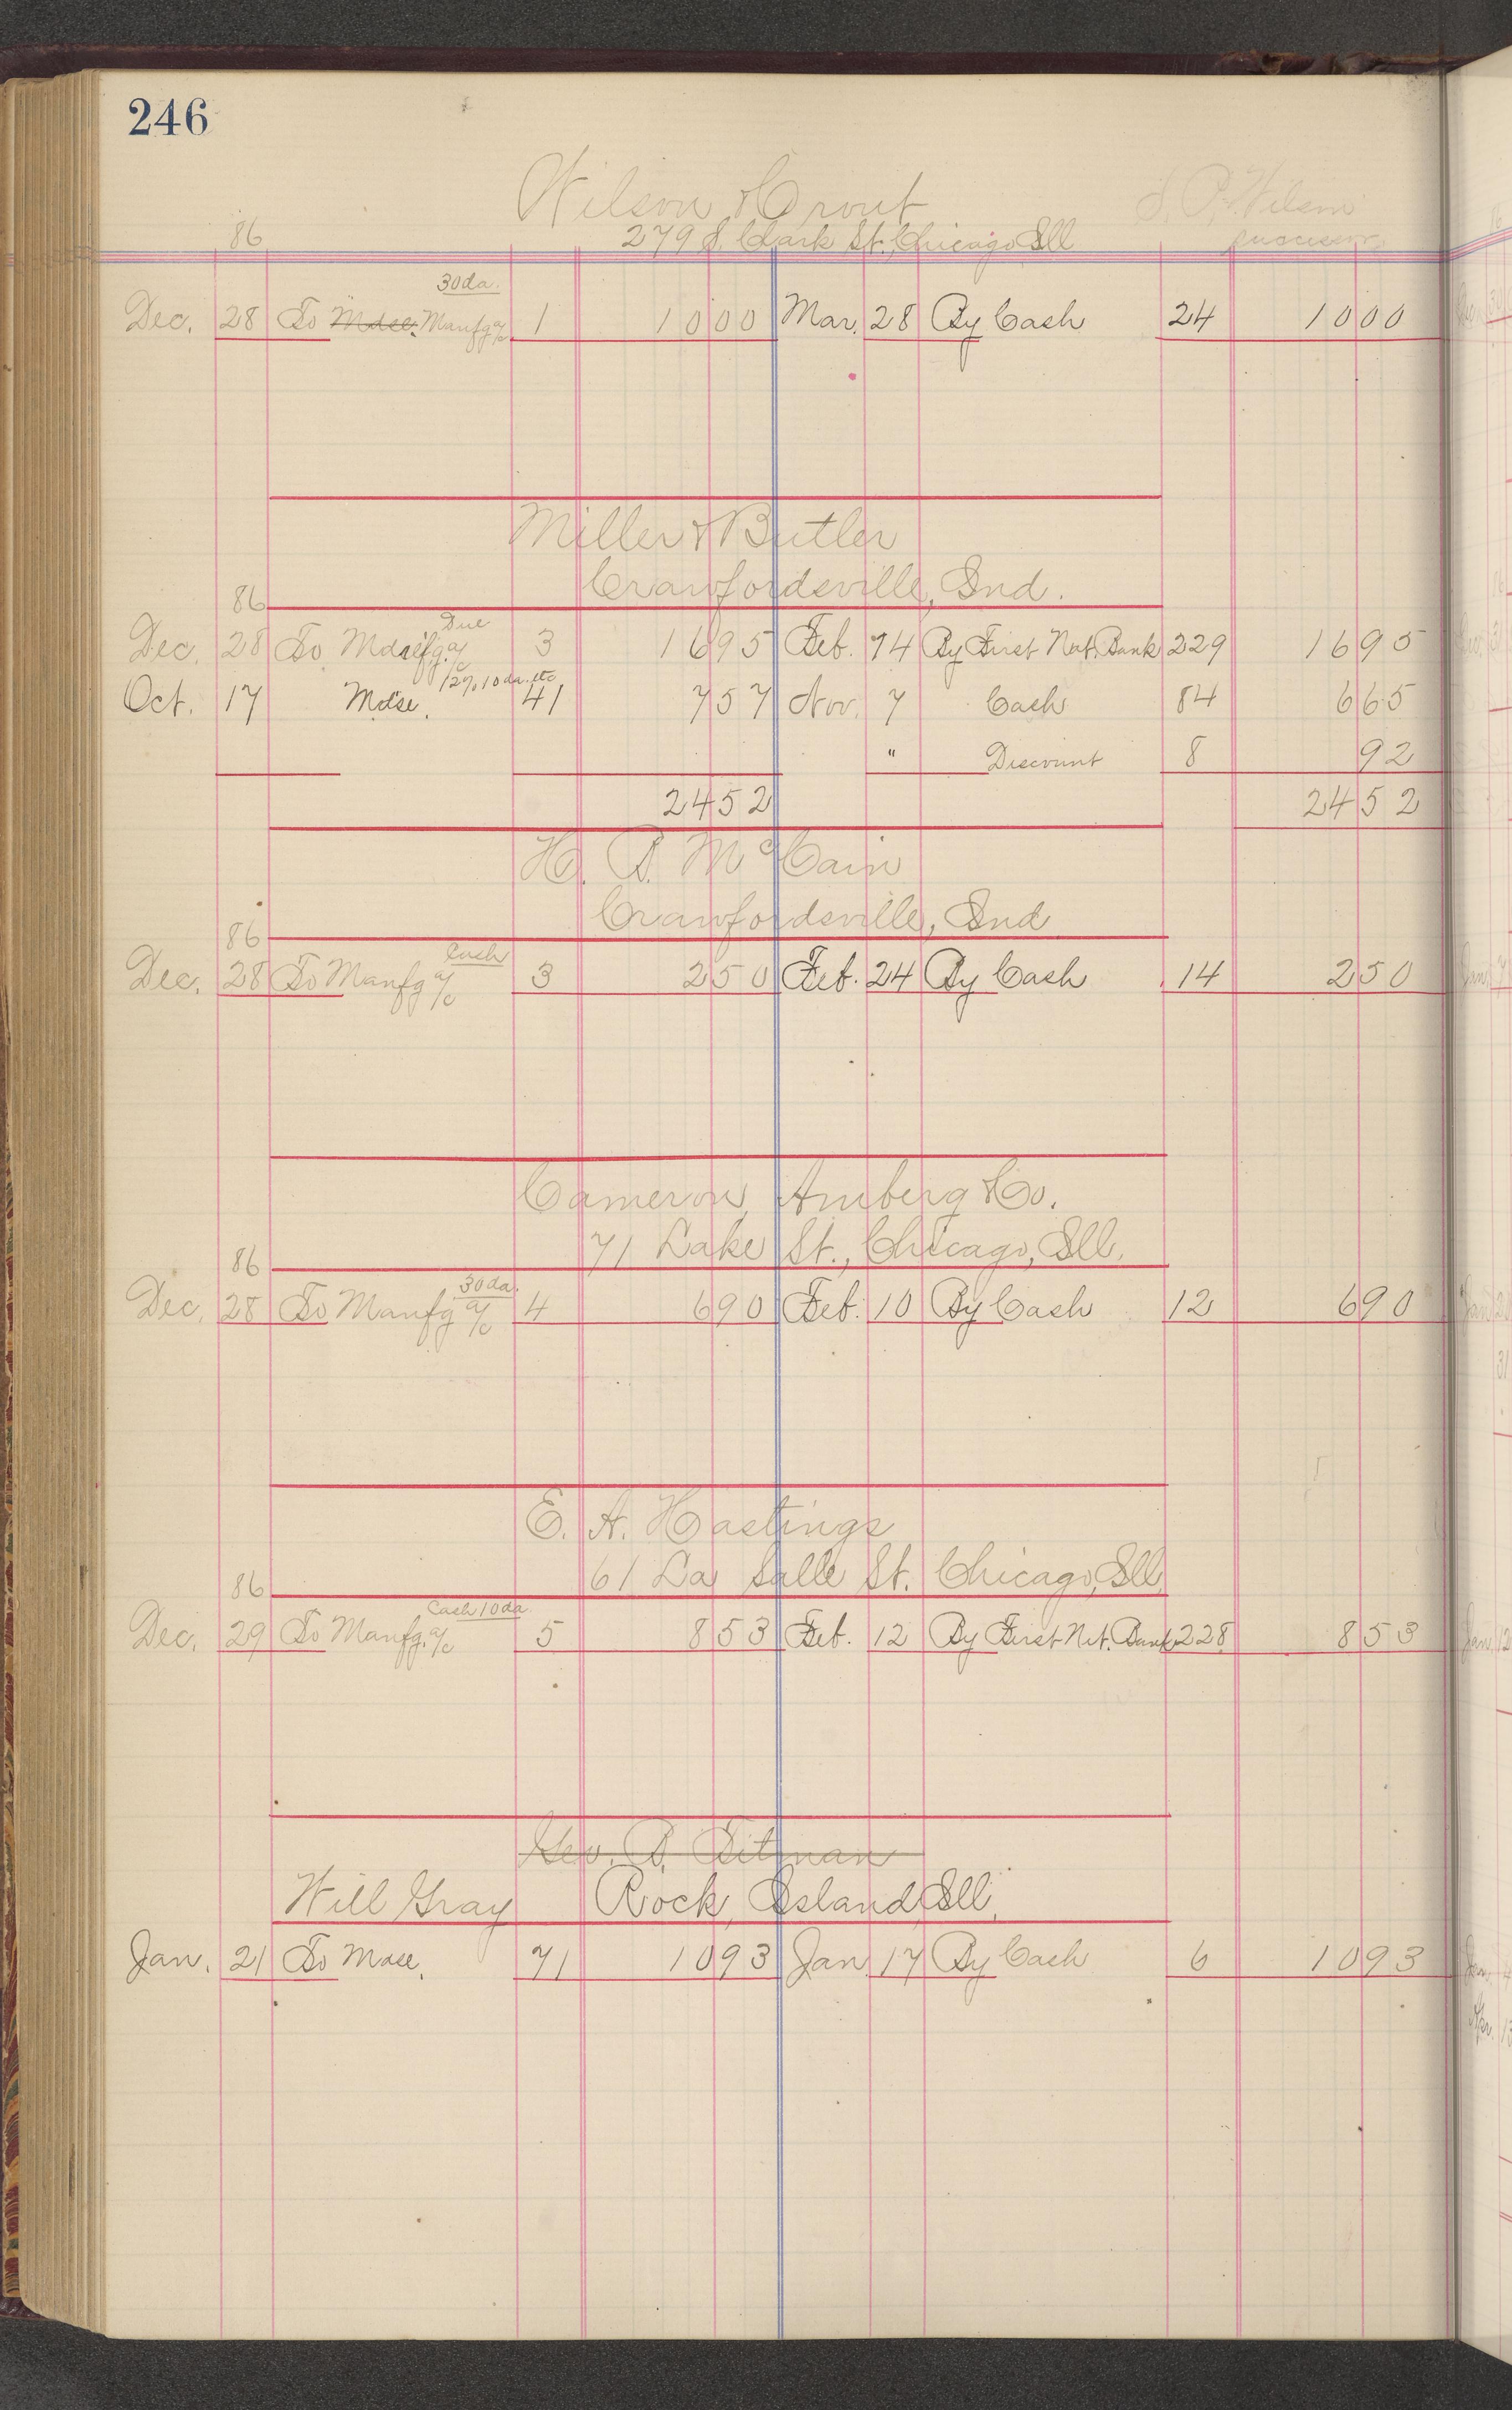 246
Wilson & Crout S. P. Wilson
86 279 S. Clark St. Chicago Ill successor
30 da.
Dec. 28 To Mdse. Manfg a/c 1 1000 Mar. 28 By Cash 24 1000
Miller & Butler
Crawfordsville, Ind.
86
Due
Dec. 28 To a/c 3 1695 Feb. 14 By First Nat. Bank 229 1695
12% 10 da. etc
Oct. 17 Mdse. 41 757 Nov. 7 Cash 84 665
" Discount 8 92
2452 2452
H. P. McCain
Crawfordsville, Ind
86
Cash
Dec. 28 To Manfg a/c 3 250 Feb. 24 By Cash 14 250
Cameron, Amberg & Co.
71 Lake St., Chicago, Ill.
86
30 da.
Dec. 28 To Manfg a/c 4 690 Feb. 10 By Cash 12 690
E. A. Hastings
61 La Salle St. Chicago, Ill
86
Cash 10 da
Dec. 29 To Manfg. a/c 5 853 Feb. 12 By First Nat. Bank 228 853
Geo. P. Titman
Will Gray Rock Island, Ill.
Jan. 21 To Mdse. 71 1093 Jan. 17 By Cash 6 1093